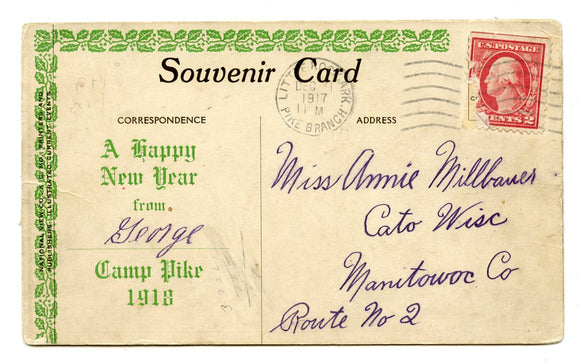 Souvenir Card
LITTLE ROCK, ARK.
DEC 31
1917
11 M
PIKE BRANCH
U.S. POSTAGE
CENTS 2
CORRESPONDENCE
ADDRESS
A Happy
New Year
from
George
Camp Pike
1918
Miss Annie Millbauer
Cato Wisc
Manitowoc Co
Route No 2
NATIONAL VIEW CO. K.C. MO. PRINTERS AND
PUBLISHERS ILLUSTRATED CURRENT EVENTS